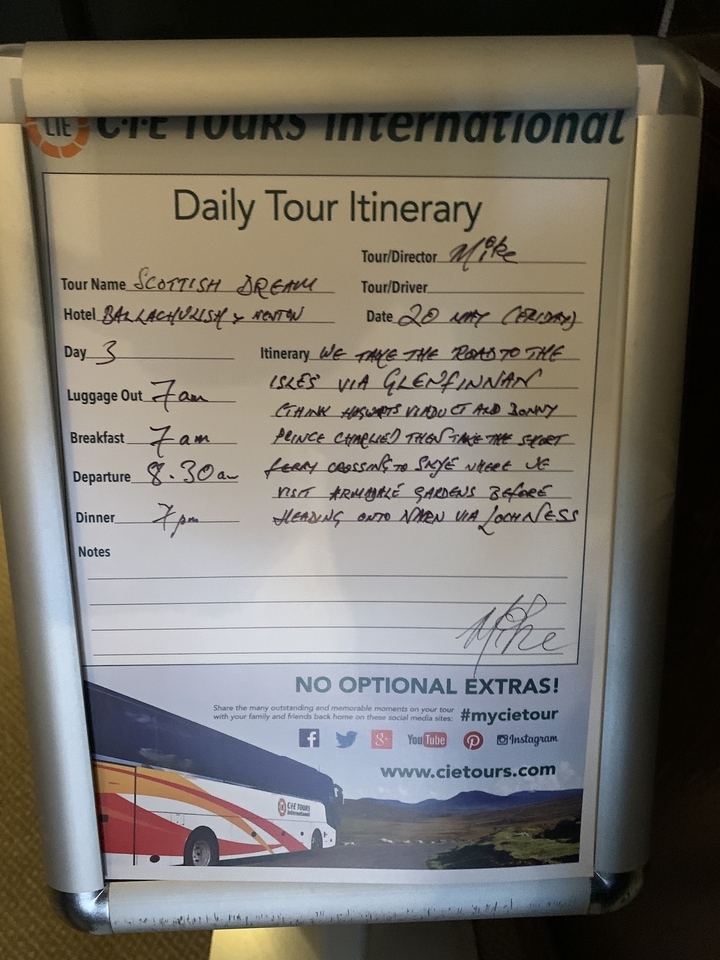 CIE C·I·E TOURS International
Daily Tour Itinerary
Tour/Director Mike
Tour Name SCOTTISH DREAM
Tour/Driver
Hotel BALLACHULISH & NENTON
Date 20 MAY (FRIDAY)
Day 3
Itinerary WE TAKE THE ROAD TO THE
ISLES VIA GLENFINNAN
Luggage Out 7am
(THINK HOGWARTS VIADUCT AND BONNY
Breakfast 7am
PRINCE CHARLIE) THEN TAKE THE SHORT
Departure 8.30am
FERRY CROSSING TO SKYE WHERE WE
VISIT ARMADALE GARDENS BEFORE
Dinner 7pm
HEADING ONTO NAIRN VIA LOCHNESS
Notes
Mike
NO OPTIONAL EXTRAS!
Share the many outstanding and memorable moments on your tour
with your family and friends back home on these social media sites: #mycietour
f g+ YouTube Instagram
www.cietours.com
C·I·E TOURS
International